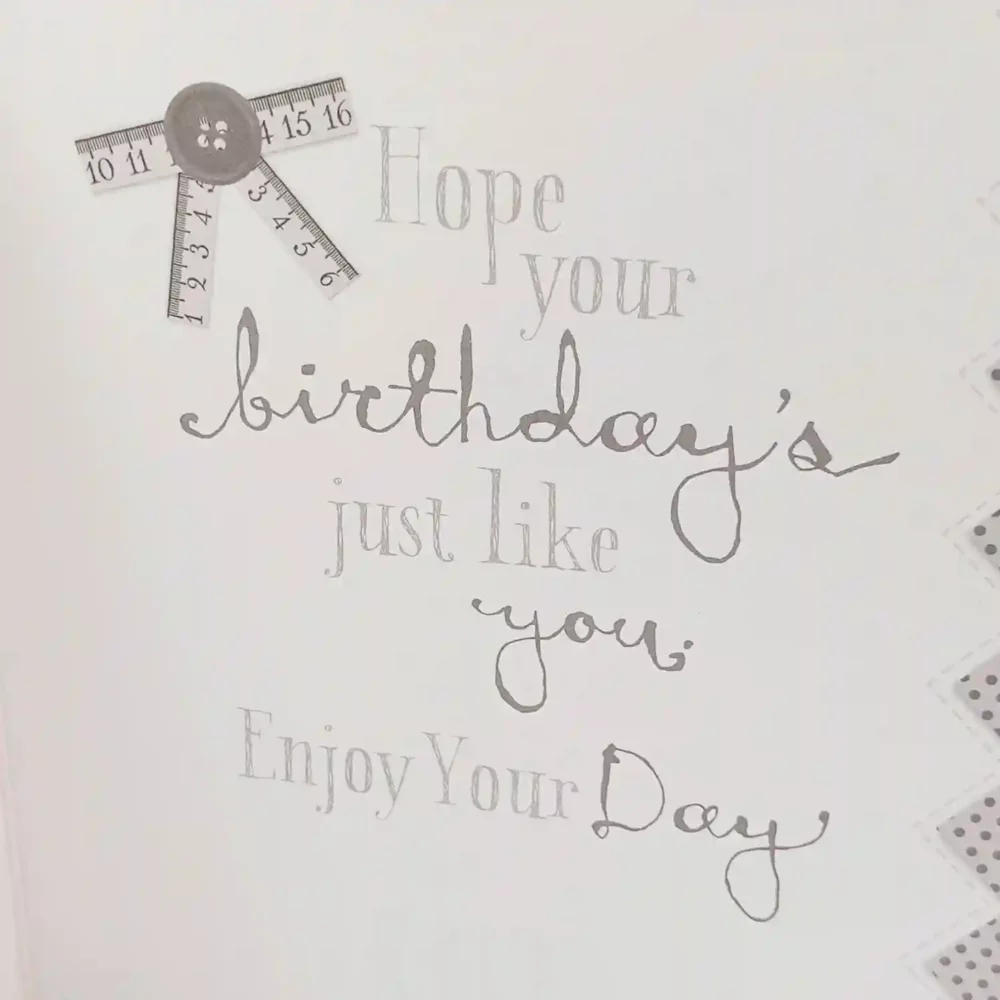 10 11 4 15 16
1 2 3 4 5
3 4 5 6
Hope
your
birthday's
just like
you.
Enjoy Your Day